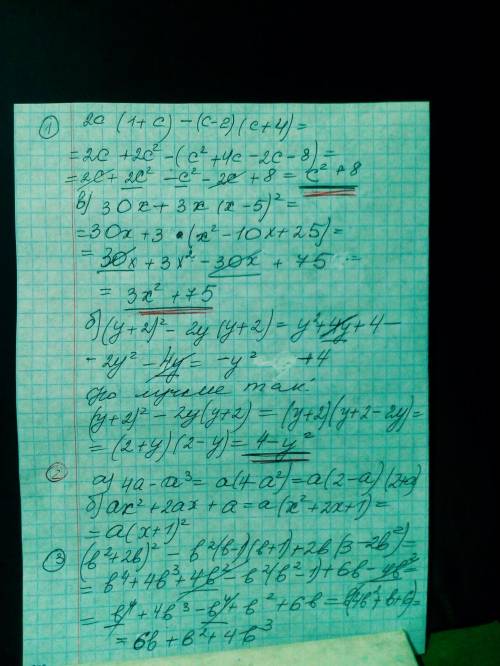 ① 2c (1+c) -(c-2)(c+4)=
=2c +2c² -(c²+4c-2c-8)=
=2c+2c²-c²-2c+8= c²+8
в) 30x+3x(x-5)²=
=30x+3·(x²-10x+25)=
=30x+3x²-30x+75=
= 3x²+75
б) (y+2)²-2y(y+2)= y²+4y+4-
-2y²-4y= -y² +4
но лучше так:
(y+2)²-2y(y+2)=(y+2)(y+2-2y)=
=(2+y)(2-y)=4-y²
② а) 4a-a³=a(4-a²)=a(2-a)(2+a)
б) ax²+2ax+a=a(x²+2x+1)=
=a(x+1)²
③ (b²+2b)²-b²(b-1)(b+1)+2b(3-2b²)=
=b⁴+4b³+4b²-b²(b²-1)+6b-4b³=
=b⁴+4b³-b⁴+b²+6b=b(4b²+b+6)=
=6b+b²+4b³